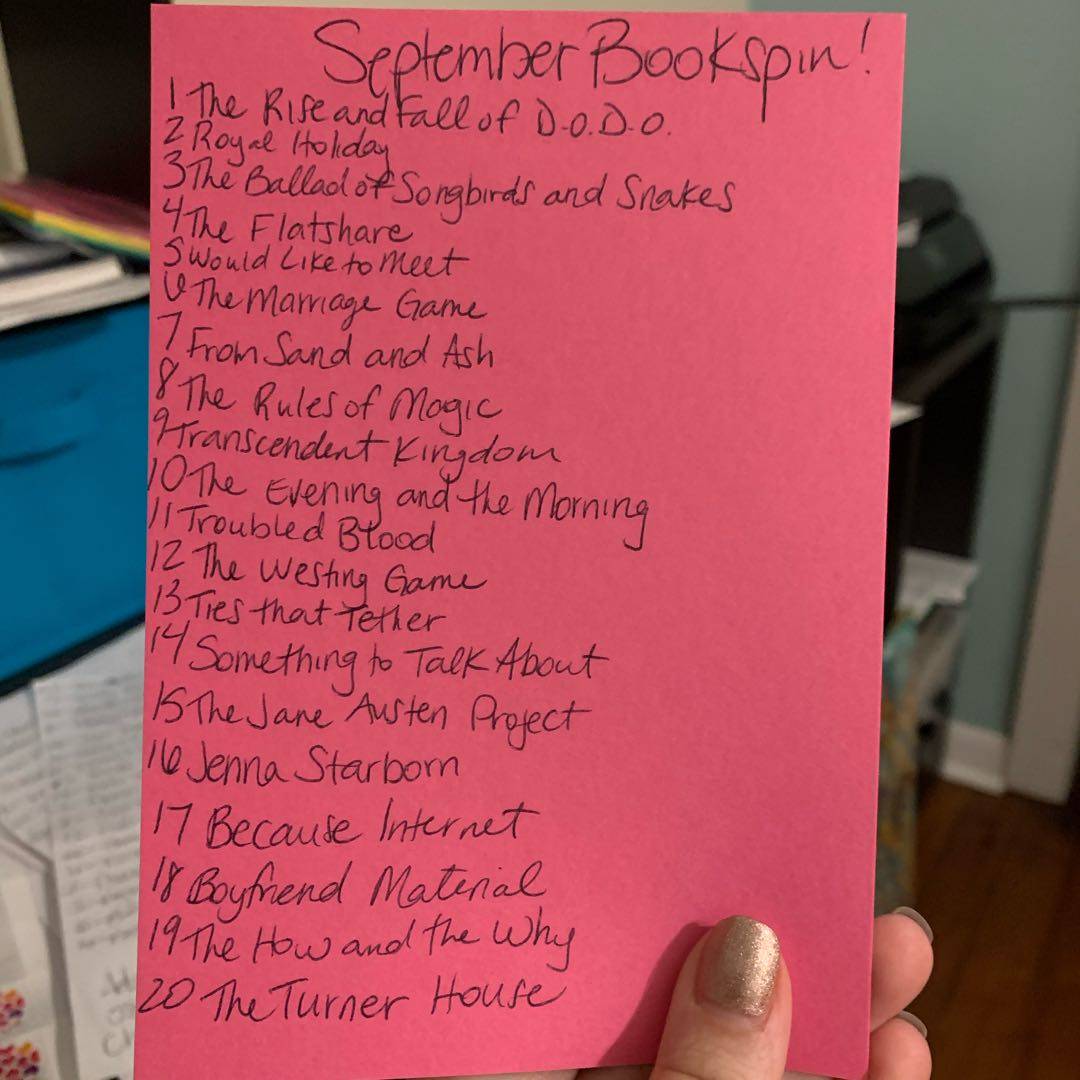 September Bookspin!
1 The Rise and Fall of D.O.D.O.
2 Royal Holiday
3 The Ballad of Songbirds and Snakes
4 The Flatshare
5 Would Like to Meet
6 The Marriage Game
7 From Sand and Ash
8 The Rules of Magic
9 Transcendent Kingdom
10 The Evening and the Morning
11 Troubled Blood
12 The Westing Game
13 Ties that Tether
14 Something to Talk About
15 The Jane Austen Project
16 Jenna Starborn
17 Because Internet
18 Boyfriend Material
19 The How and the Why
20 The Turner House